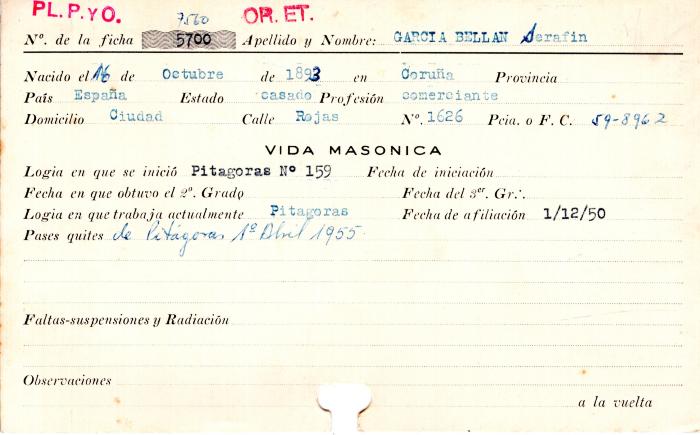 PL. P. y O. 7560 OR. ET.
Nº. de la ficha 5700 Apellido y Nombre: GARCIA BELLAN Serafin
Nacido el 16 de Octubre de 1893 en Coruña Provincia
País España Estado casado Profesión comerciante
Domicilio Ciudad Calle Rojas Nº. 1626 Pcia. o F. C. 59-8962
VIDA MASONICA
Logia en que se inició Pitagoras Nº 159 Fecha de iniciación
Fecha en que obtuvo el 2º. Grado Fecha del 3er. Gr∴
Logia en que trabaja actualmente Pitagoras Fecha de afiliación 1/12/50
Pases quites de Pitágoras 1º Abril 1955.
Faltas-suspensiones y Radiación
Observaciones
a la vuelta